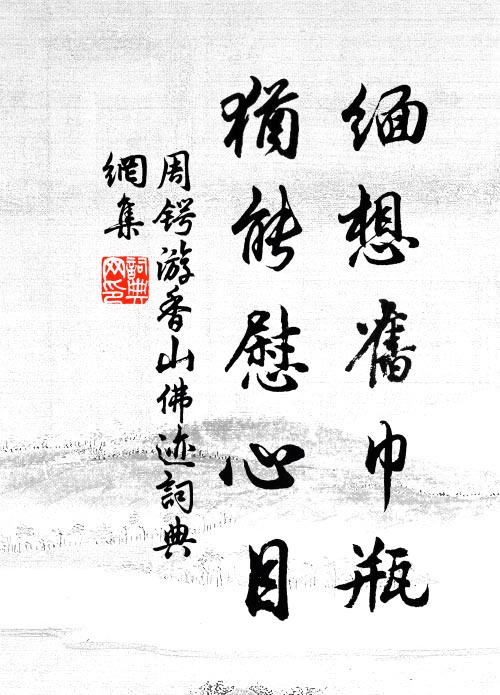 緬想舊巾瓶
猶能慰心目
周鍔游香山佛迹詞典
網集
詞典網印